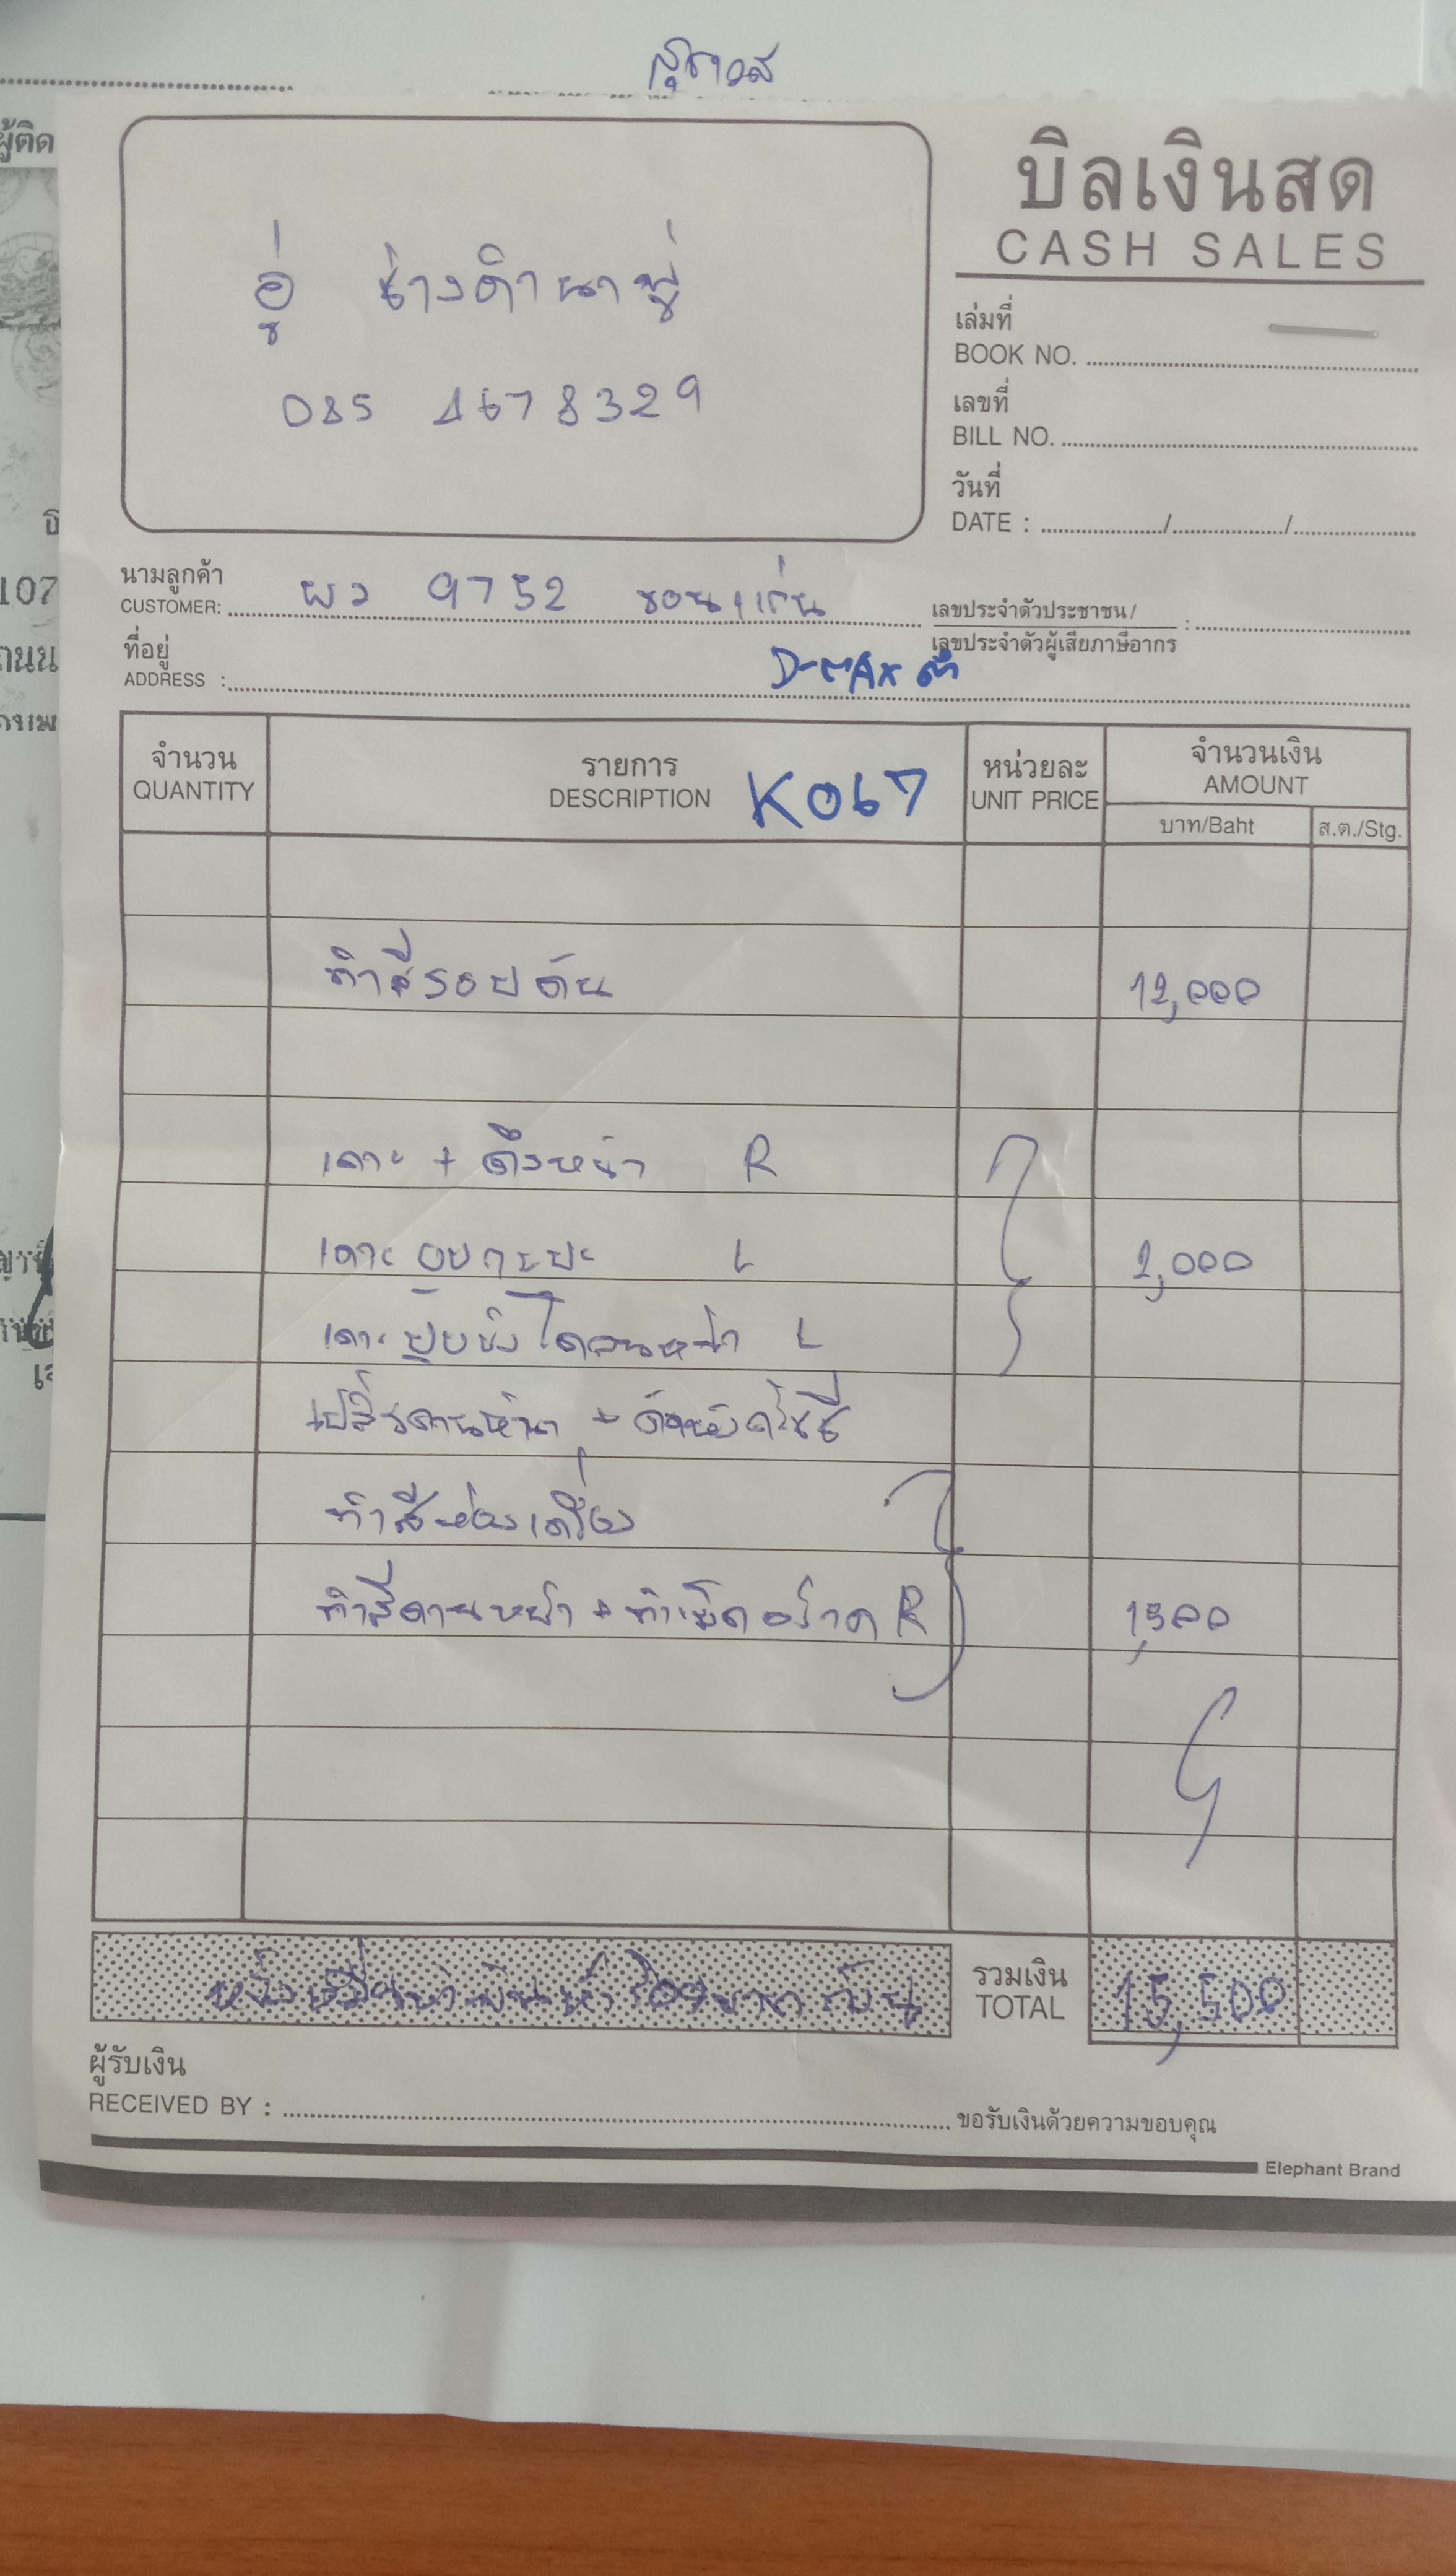 ผู้ติด
107
ถนน
บิลเงินสด
CASH SALES
อู่ ช่างดำนาพู่
085 4678329
เล่มที่
BOOK NO.
เลขที่
BILL NO.
วันที่
DATE : / /
นามลูกค้า
CUSTOMER: ผว 9752 ขอนแก่น
เลขประจำตัวประชาชน/
เลขประจำตัวผู้เสียภาษีอากร :
ที่อยู่
ADDRESS : D-MAX ดำ
จำนวน รายการ หน่วยละ จำนวนเงิน
QUANTITY DESCRIPTION K067 UNIT PRICE AMOUNT
บาท/Baht ส.ต./Stg.
ทำสีรอบคัน 12,000
เคาะ + ดึงหน้า R
เคาะ กะบะ L 2,000
เคาะ หน้า L
ทำสีห้องเครื่อง
ทำสีคานหน้า + R 1,500
หนึ่งหมื่นห้าพันห้าร้อยบาทถ้วน
รวมเงิน
TOTAL 15,500
ผู้รับเงิน
RECEIVED BY : ขอรับเงินด้วยความขอบคุณ
Elephant Brand